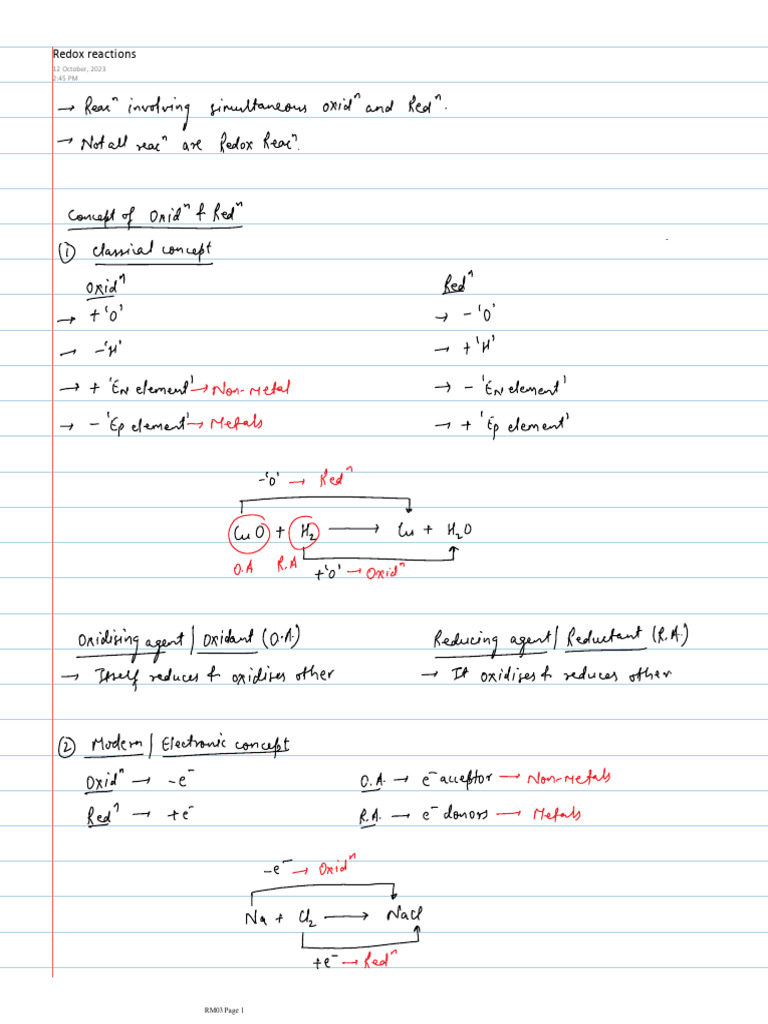 Redox reactions
12 October, 2023
2:45 PM
→ Reacⁿ involving simultaneous oxidⁿ and Redⁿ.
→ Not all reacⁿ are Redox Reacⁿ.
Concept of Oxidⁿ & Redⁿ
① Classical concept
Oxidⁿ Redⁿ
→ + 'O' → - 'O'
→ - 'H' → + 'H'
→ + 'EN element' → Non-metal → - 'EN element'
→ - 'EP element' → Metals → + 'EP element'
-'O' → Redⁿ
CuO + H₂ ⟶ Cu + H₂O
O.A R.A +'O' → Oxidⁿ
Oxidising agent / Oxidant (O.A.) Reducing agent / Reductant (R.A.)
→ Itself reduces & oxidises other → It oxidises & reduces other
② Modern / Electronic concept
Oxidⁿ → -e⁻ O.A. → e⁻ acceptor → Non-metals
Redⁿ → +e⁻ R.A. → e⁻ donors → Metals
-e⁻ → Oxidⁿ
Na + Cl₂ ⟶ NaCl
+e⁻ → Redⁿ
RM03 Page 1